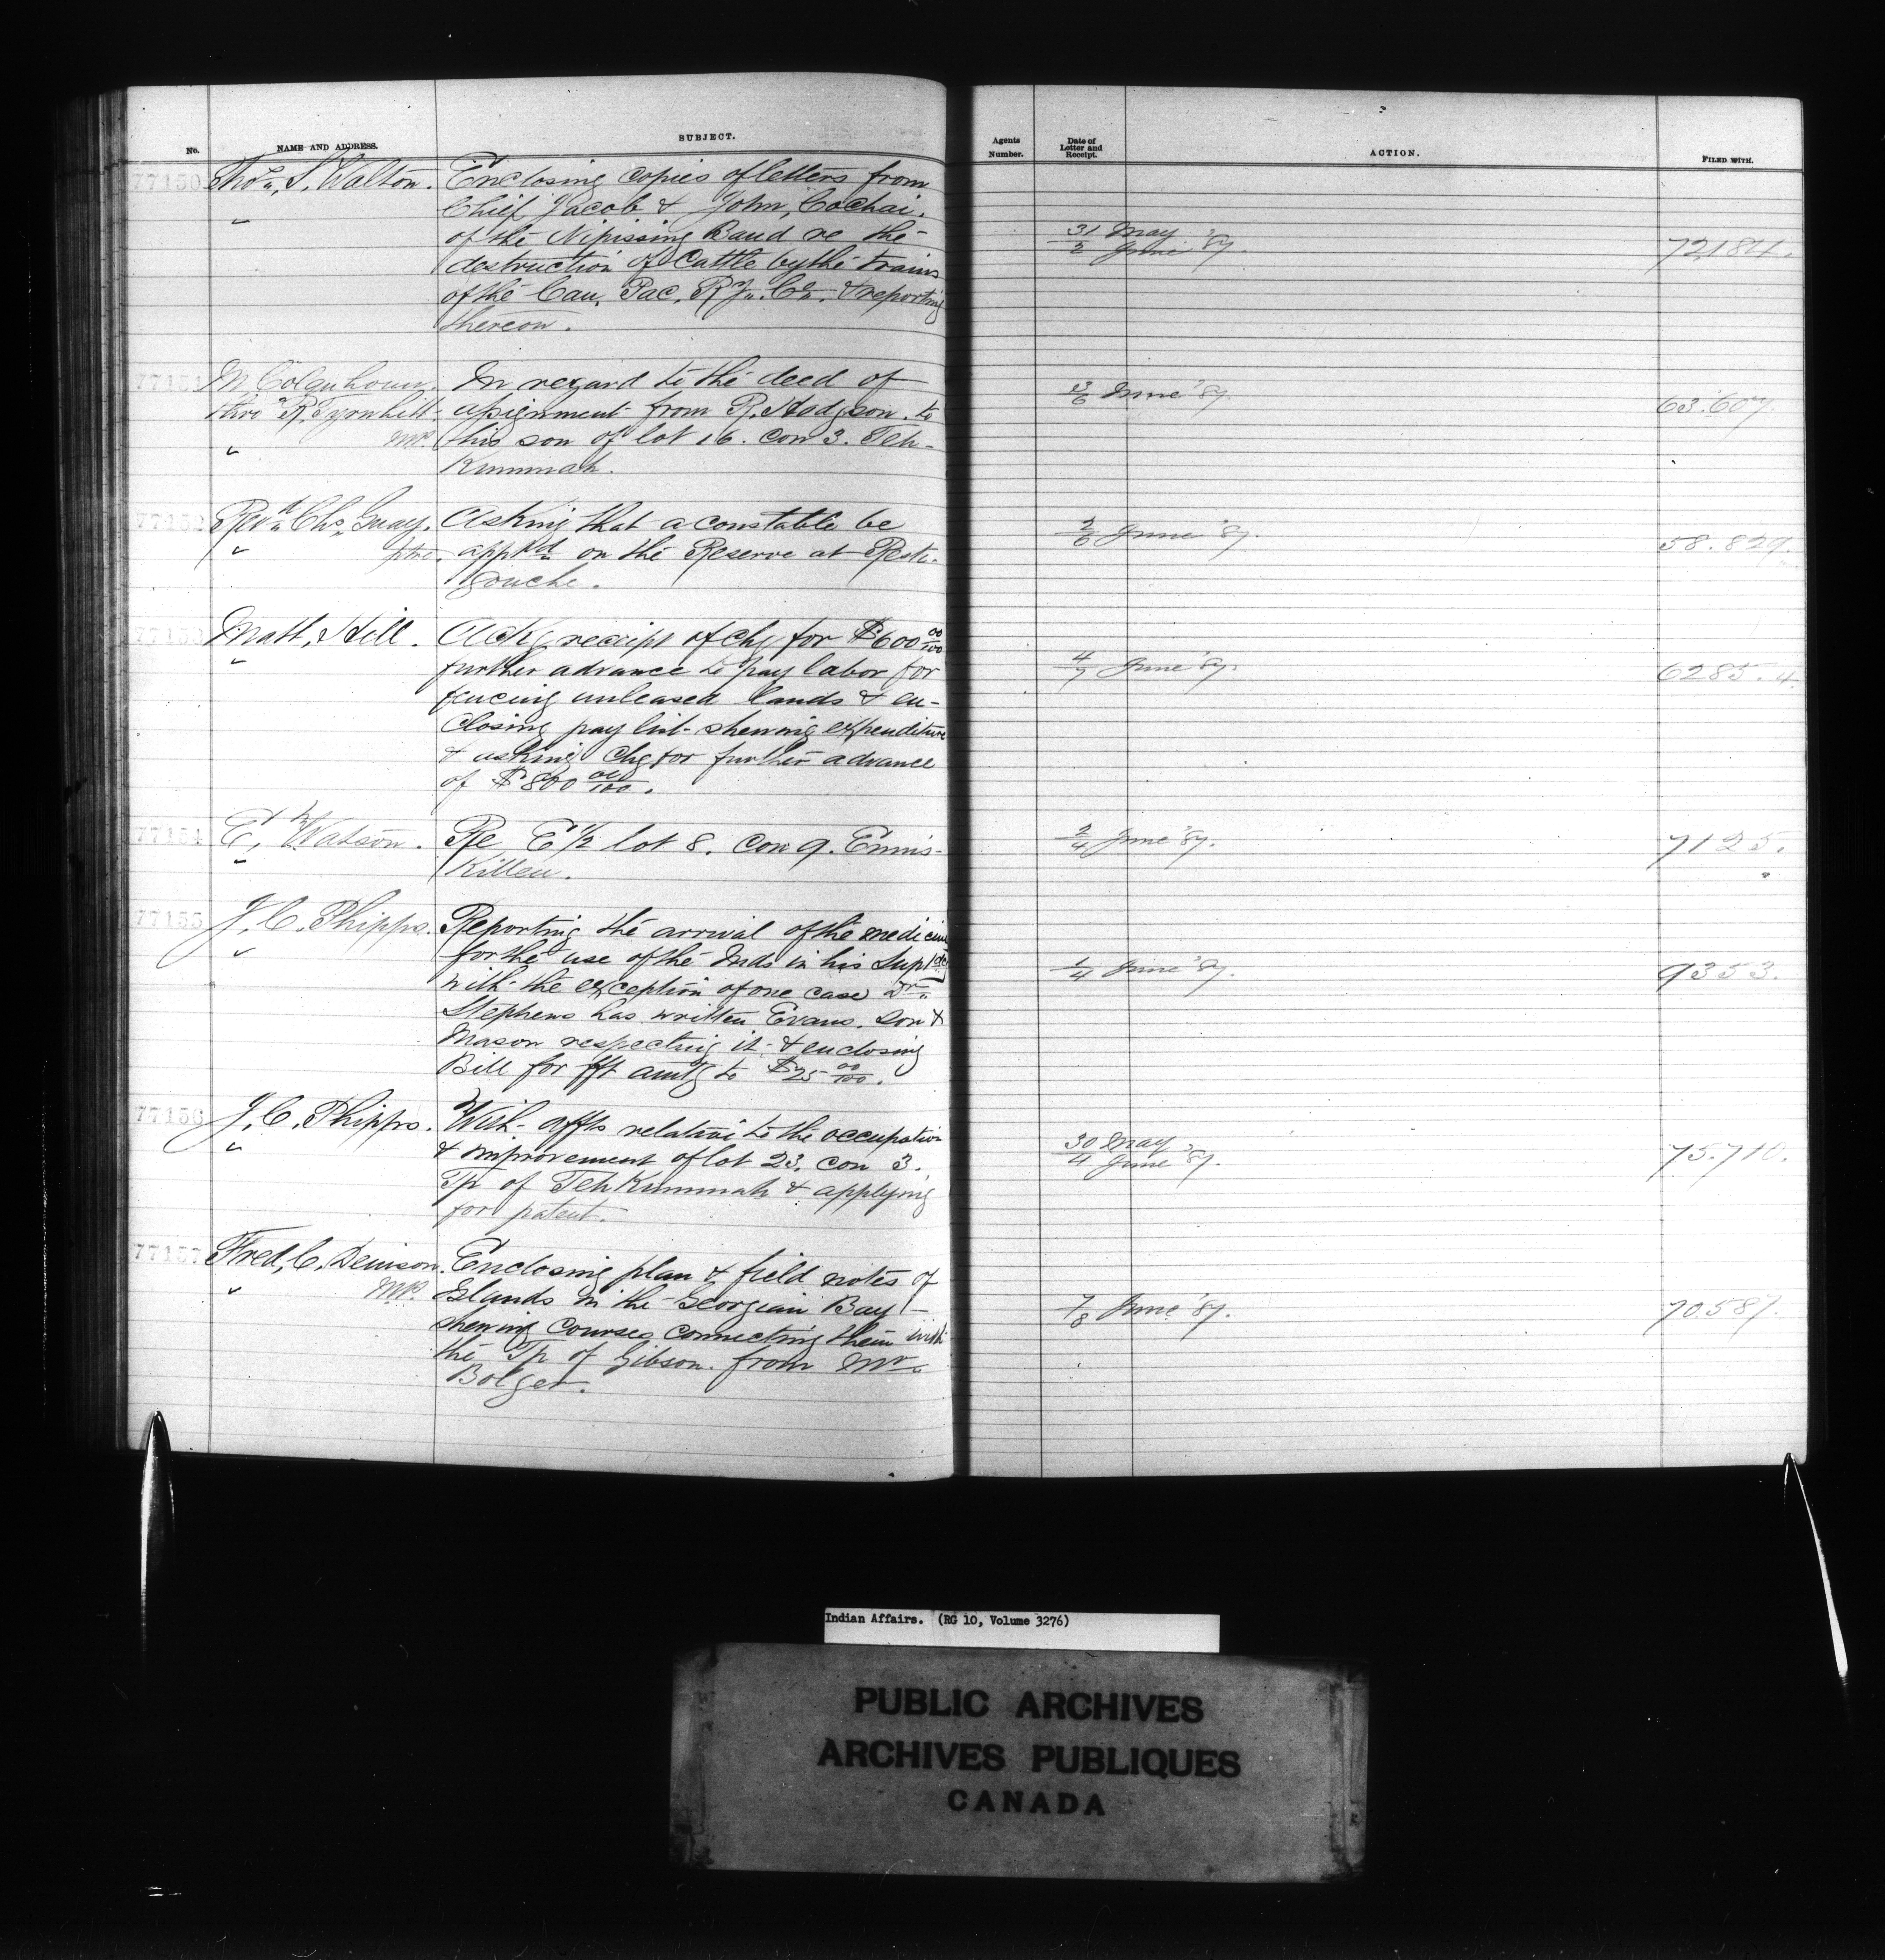 No. NAME AND ADDRESS. SUBJECT. Agents Number. Date of Letter and Receipt. ACTION. FILED WITH.
77150 Thos. S. Walton. Enclosing copies of letters from
Chief Jacob & John, Cochai.
of the Nipissing Band re the
destruction of Cattle by the trains
of the Can. Pac. Ry. Co. & reporting
thereon.
31/2 May June '87. 72,184.
77151 M Colquhoun. In regard to the deed of
thro R. Tyrwhitt assignment from R. Hodgson. to
MP. his son of lot 16. con 3. Teh-
Kummah.
June '87. 63.607.
77152 Revd. Chs. Guay. Asking that a constable be
ptre. appd on the Reserve at Resti-
gouche.
2/6 June '87. 58.829.
77153 Matt. Hill. Ackg receipt of chq for $600 00/100
further advance to pay labor for
fencing unleased lands & en-
closing pay list shewing expenditure
& asking chq for further advance
of $800 00/100.
4/7 June '87. 6285.4.
77154 E. Watson. Re E 1/2 lot 8. Con 9. Ennis-
Killen.
2/4 June '87. 7125.
77155 J. C. Phipps. Reporting the arrival of the medicine
for the use of the Inds in his Suptcy
with the exception of one case Dr.
Stephens has written Evans. Son &
Mason respecting it & enclosing
Bill for frt amtg to $25 00/100.
1/4 June '87. 9353.
77156 J. C. Phipps. With affts relative to the occupation
& improvement of lot 23. con 3.
Tp of TehKummah & applying
for patent.
30/4 May June '87. 75.710.
77157 Fred. C. Denison. Enclosing plan & field notes of
MP. Islands in the Georgian Bay
shewing Courses connecting them with
the Tp of Gibson. from Mr.
Bolger.
7/8 June '87. 70.587.
Indian Affairs. (RG 10, Volume 3276)
PUBLIC ARCHIVES
ARCHIVES PUBLIQUES
CANADA